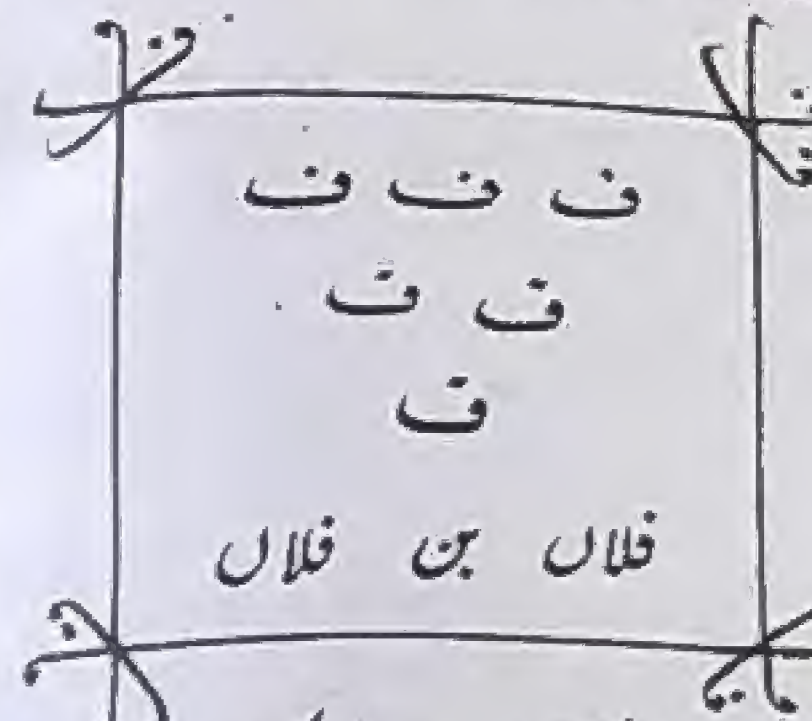 ف ف ف
ف ف
ف
فلاں بن فلاں